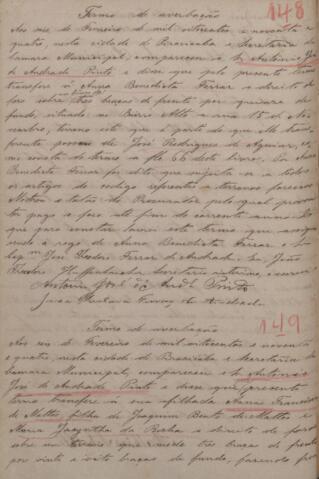 148
Termo de averbação
Aos seis de Fevereiro de mil oitocentos e noventa e
quatro, nesta cidade de Piracicaba e Secretaria da
Camara Municipal, compareceu o Sr. Antonio José
de Andrade Pinto e disse que pelo presente termo
transfere á Anna Benedicta Ferraz o direito de
foro sobre tres braças de frente por quinze de
fundo, situado no Bairro Alto a rua 15 de No
vembro, terreno este que é parte do que
frente possue de José Rodrigues de Aguiar,
termo a fls 66 deste livro. Da Anna
Benedicta Ferraz foi dito que sujeita-se a todos
os artigos do codigo referentes a terrenos foreiros
Mostrou o talão do Procurador pelo qual provou ter
pago o foro até fim do corrente anno. Do
que para constar lavrei este termo que assigna
a rogo de Anna Benedicta Ferraz
José Ferraz de Andrade. Eu João
Secretario interino, o escrevi.
Antonio José de Andrade Pinto
Ferraz de Andrade
149
Termo de averbação
Aos seis de Fevereiro de mil oitocentos e noventa
e quatro, nesta cidade de Piracicaba e Secretaria da
Camara Municipal, compareceu o Sr. Antonio
José de Andrade Pinto e disse que presente
termo transfere á sua afilhada Anna Francisca
de Mattos, filha de Joaquim Bento de Mattos e
Maria Jacyntha da Rocha o direito de foro
sobre um terreno que mede tres braças de frente
por vinte e oito braças de fundo, fazendo fren